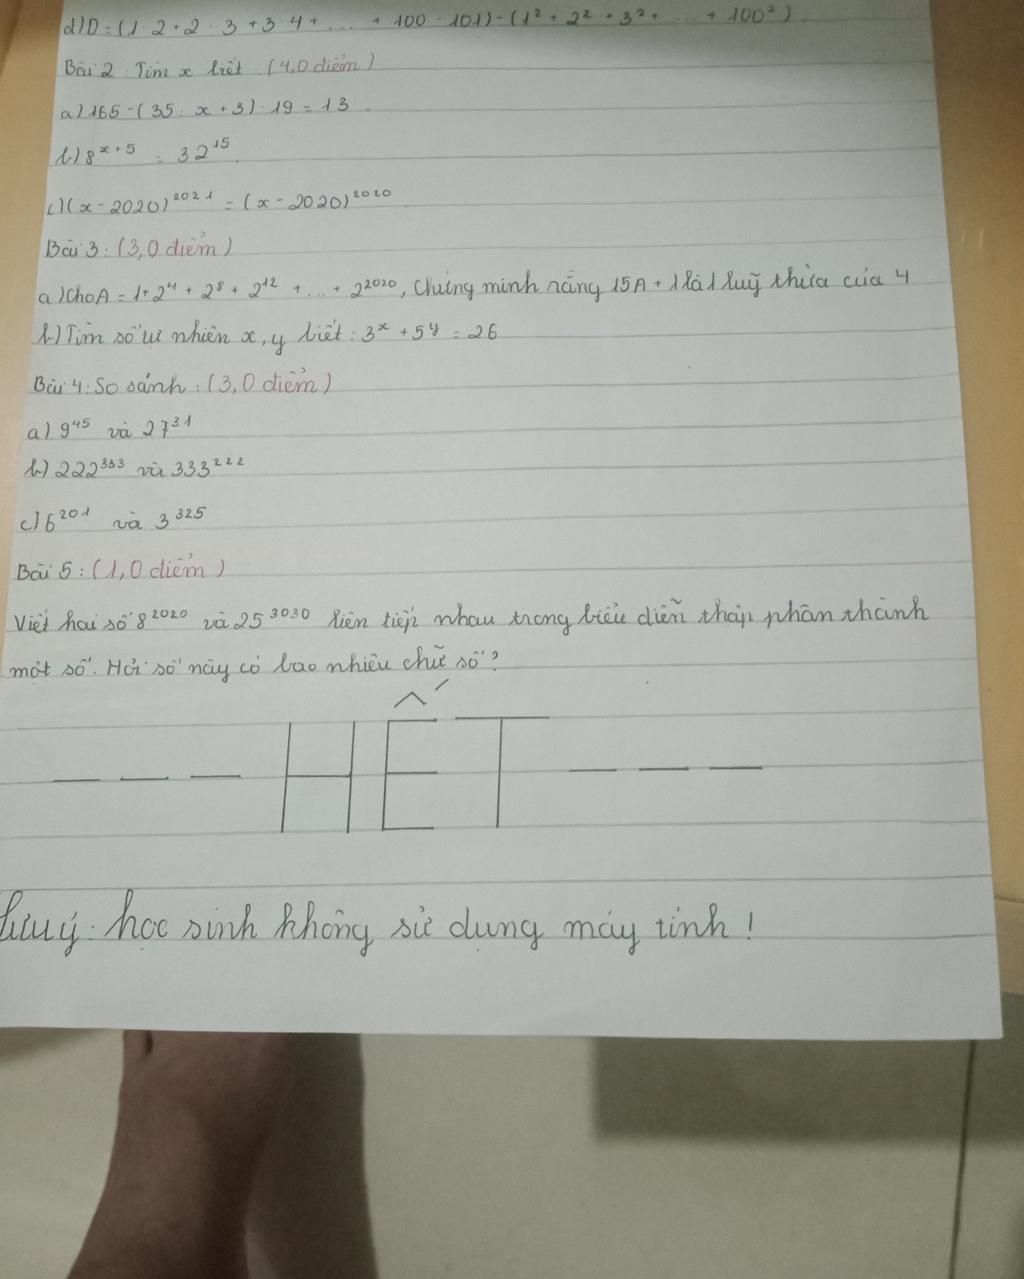 d) D = (1·2 + 2·3 + 3·4 + ... + 100·101) - (1² + 2² + 3² + ... + 100²)
Bài 2: Tìm x biết: (4,0 điểm)
a) 165 - (35 : x + 3) · 19 = 13
b) 8ˣ⁺⁵ = 32¹⁵
c) (x - 2020)²⁰²¹ = (x - 2020)²⁰²⁰
Bài 3: (3,0 điểm)
a) Cho A = 1 + 2⁴ + 2⁸ + 2¹² + ... + 2²⁰²⁰, Chứng minh rằng 15A + 1 là 1 luỹ thừa của 4
b) Tìm số tự nhiên x, y biết: 3ˣ + 5ʸ = 26
Bài 4: So sánh: (3,0 điểm)
a) 9⁴⁵ và 27³¹
b) 222³³³ và 333²²²
c) 6²⁰¹ và 3³²⁵
Bài 5: (1,0 điểm)
Viết hai số 8²⁰²⁰ và 25³⁰³⁰ liên tiếp nhau trong biểu diễn thập phân thành
một số. Hỏi số này có bao nhiêu chữ số?
--- HẾT ---
Lưu ý: học sinh không sử dụng máy tính!